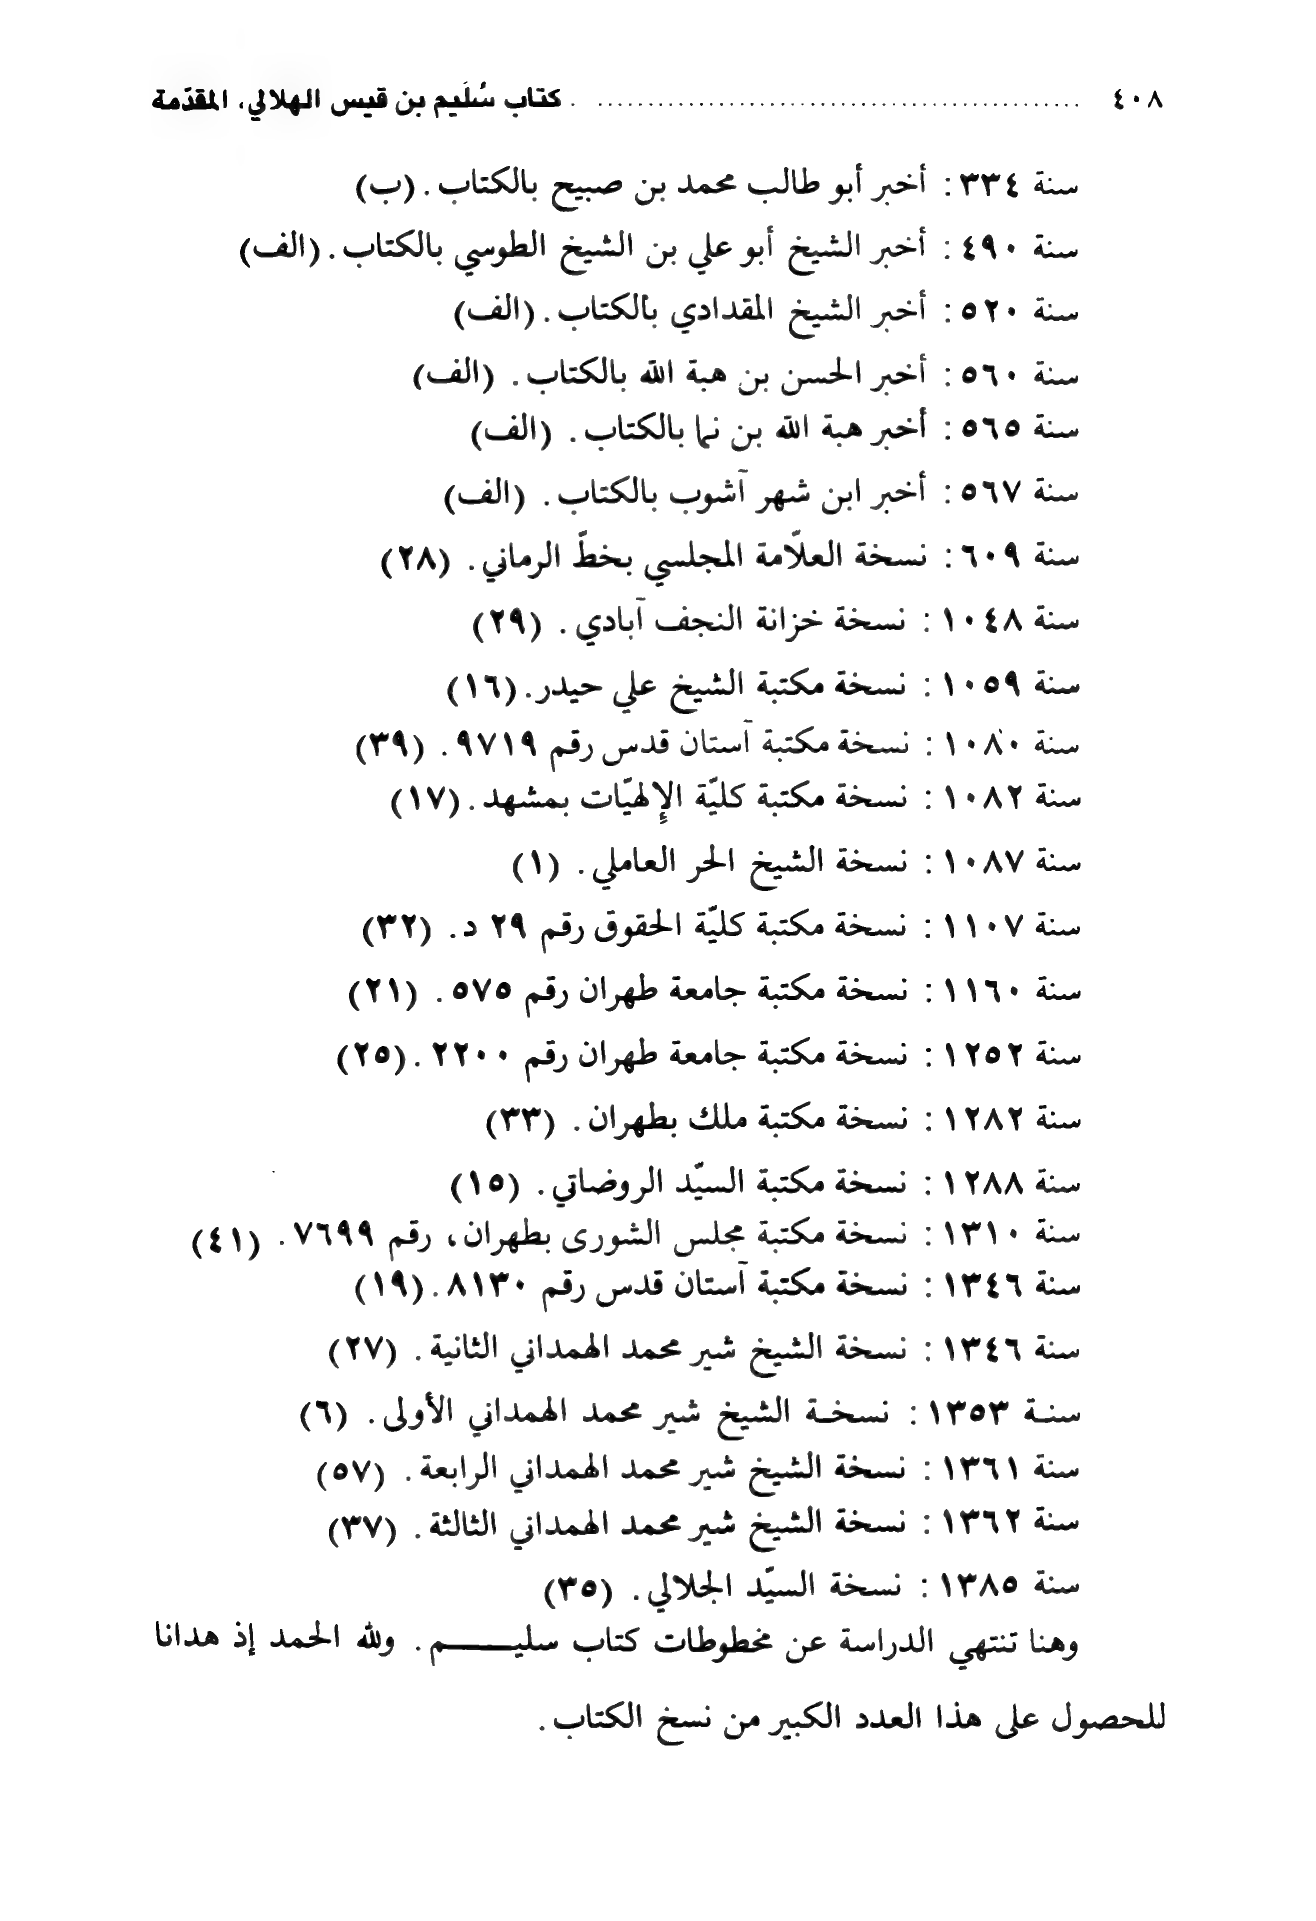 ٤٠٨ ........................................ كتاب سُلَيم بن قيس الهلالي، المقدّمة
سنة ٣٣٤: أخبر أبو طالب محمد بن صبيح بالكتاب. (ب)
سنة ٤٩٠: أخبر الشيخ أبو علي بن الشيخ الطوسي بالكتاب. (الف)
سنة ٥٢٠: أخبر الشيخ المقدادي بالكتاب. (الف)
سنة ٥٦٠: أخبر الحسن بن هبة الله بالكتاب. (الف)
سنة ٥٦٥: أخبر هبة الله بن نما بالكتاب. (الف)
سنة ٥٦٧: أخبر ابن شهر آشوب بالكتاب. (الف)
سنة ٦٠٩: نسخة العلّامة المجلسي بخطّ الرماني. (٢٨)
سنة ١٠٤٨: نسخة خزانة النجف آبادي. (٢٩)
سنة ١٠٥٩: نسخة مكتبة الشيخ علي حيدر. (١٦)
سنة ١٠٨٠: نسخة مكتبة آستان قدس رقم ٩٧١٩. (٣٩)
سنة ١٠٨٢: نسخة مكتبة كليّة الإلهيّات بمشهد. (١٧)
سنة ١٠٨٧: نسخة الشيخ الحر العاملي. (١)
سنة ١١٠٧: نسخة مكتبة كليّة الحقوق رقم ٢٩ د. (٣٢)
سنة ١١٦٠: نسخة مكتبة جامعة طهران رقم ٥٧٥. (٢١)
سنة ١٢٥٢: نسخة مكتبة جامعة طهران رقم ٢٢٠٠. (٢٥)
سنة ١٢٨٢: نسخة مكتبة ملك بطهران. (٣٣)
سنة ١٢٨٨: نسخة مكتبة السيّد الروضاتي. (١٥)
سنة ١٣١٠: نسخة مكتبة مجلس الشورى بطهران، رقم ٧٦٩٩. (٤١)
سنة ١٣٤٦: نسخة مكتبة آستان قدس رقم ٨١٣٠. (١٩)
سنة ١٣٤٦: نسخة الشيخ شير محمد الهمداني الثانية. (٢٧)
سنة ١٣٥٣: نسخة الشيخ شير محمد الهمداني الأولى. (٦)
سنة ١٣٦١: نسخة الشيخ شير محمد الهمداني الرابعة. (٥٧)
سنة ١٣٦٢: نسخة الشيخ شير محمد الهمداني الثالثة. (٣٧)
سنة ١٣٨٥: نسخة السيّد الجلالي. (٣٥)
وهنا تنتهي الدراسة عن مخطوطات كتاب سليـــــم. ولله الحمد إذ هدانا
للحصول على هذا العدد الكبير من نسخ الكتاب.